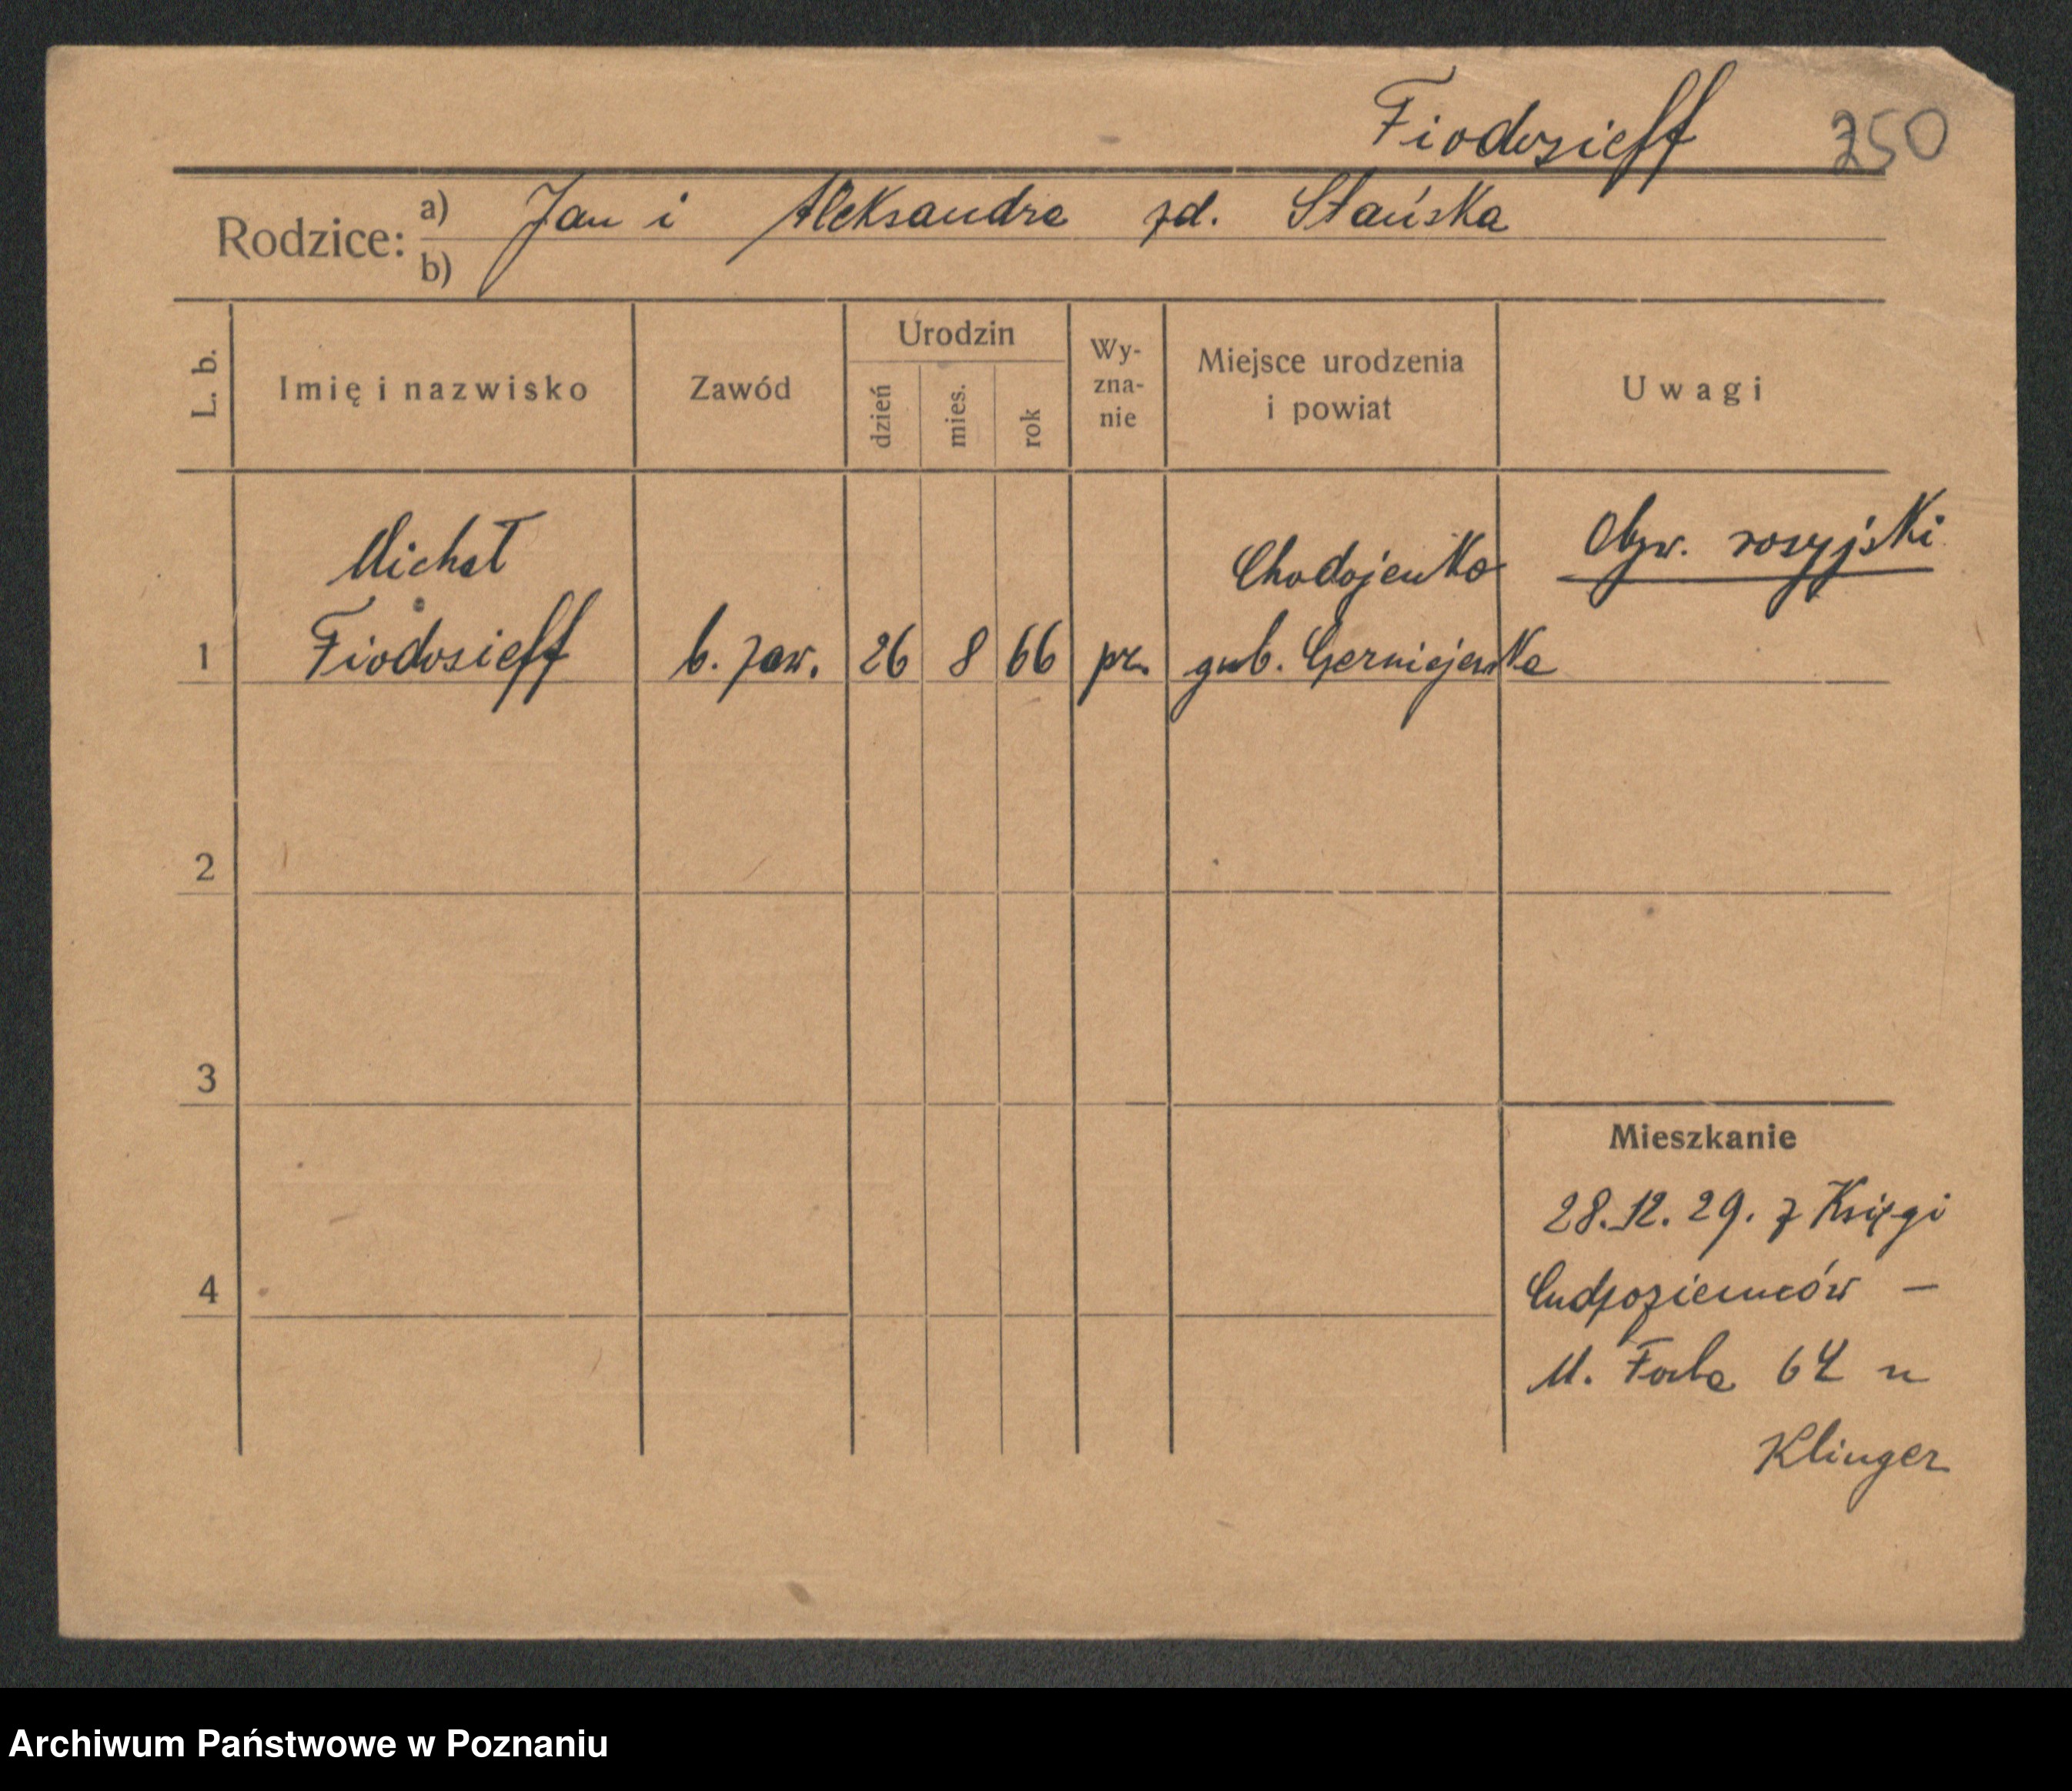 Fiodosieff 350
Rodzice: a) Jan i Aleksandra zd. Stańska
b)
L. b. Imię i nazwisko Zawód Urodzin dzień mies. rok Wy-zna-nie Miejsce urodzenia i powiat Uwagi
Michał Chodojenko Obyw. rosyjski
1 Fiodosieff b. zaw. 26 8 66 pr. gub.
2
3
Mieszkanie
28.12.29. z Księgi
4 Cudzoziemców –
M. Focha 64 u
Klinger
Archiwum Państwowe w Poznaniu